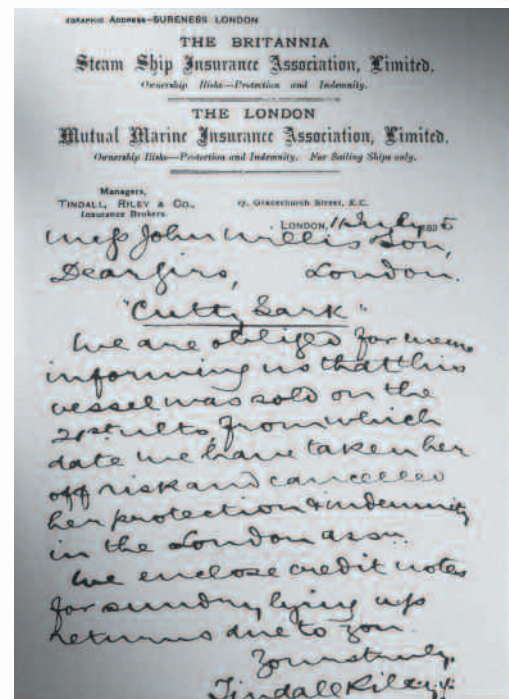 EGRAPHIC ADDRESS—SURENESS LONDON
THE BRITANNIA
Steam Ship Insurance Association, Limited.
Ownership Risks—Protection and Indemnity.
THE LONDON
Mutual Marine Insurance Association, Limited.
Ownership Risks—Protection and Indemnity. For Sailing Ships only.
Managers,
TINDALL, RILEY & Co.,
Insurance Brokers.
17, Gracechurch Street, E.C.
LONDON, 1 July 1895
Messrs John Willis Son,
Dear Sirs, London.
"Cutty Sark"
We are obliged for memo
informing us that this
vessel was sold on the
21st ulto from which
date we have taken her
off risk and cancelled
her protection & indemnity
in the London assn.
We enclose credit notes
for sundry lying up
returns due to you.
Yours truly,
Tindall Riley